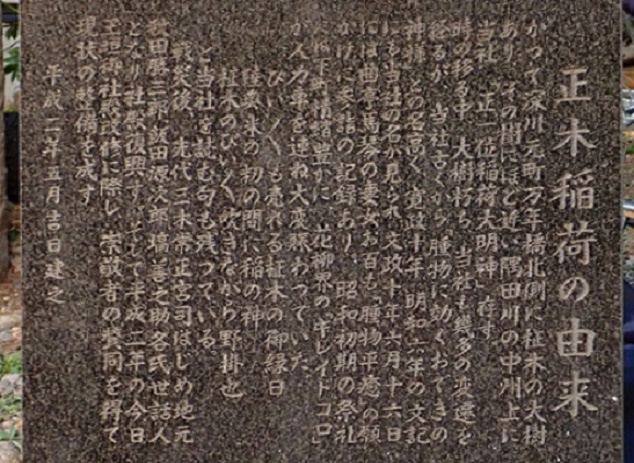 正木稲荷の由来
かつて深川元町万年橋北側に柾木の大樹
あり、その樹にほど近い隅田川の中州上に
当社「正一位稲荷大明神」存す。
時の移る中、大樹朽ち、当社も幾多の変遷を
経るが、当社古くから腫物に効くおできの
神様との名高く、寛政十年、明和六年の文記
にも当社の名が見られ、文政十年六月十六日
には曲亭馬琴の妻女お百も「腫物平癒」の願
かけに参詣の記録あり、昭和初期の祭礼
には下町情緒豊かに、花柳界の「キレイドコロ」
が人力車を連ね大変賑わっていた。
びいびいも売れる柾木の御縁日
往来の初の間に稲の神
柾木のびいびい吹きながら野掛也
と当社を詠む句も残っている。
戦災後、先代三木常正宮司はじめ地元
飯田源次郎 善之助各氏世話人
となり社殿復興す。そして平成二年の今日
社殿改修に際し、崇敬者の賛同を得て
環境の整備を成す。
平成二年五月吉日建之